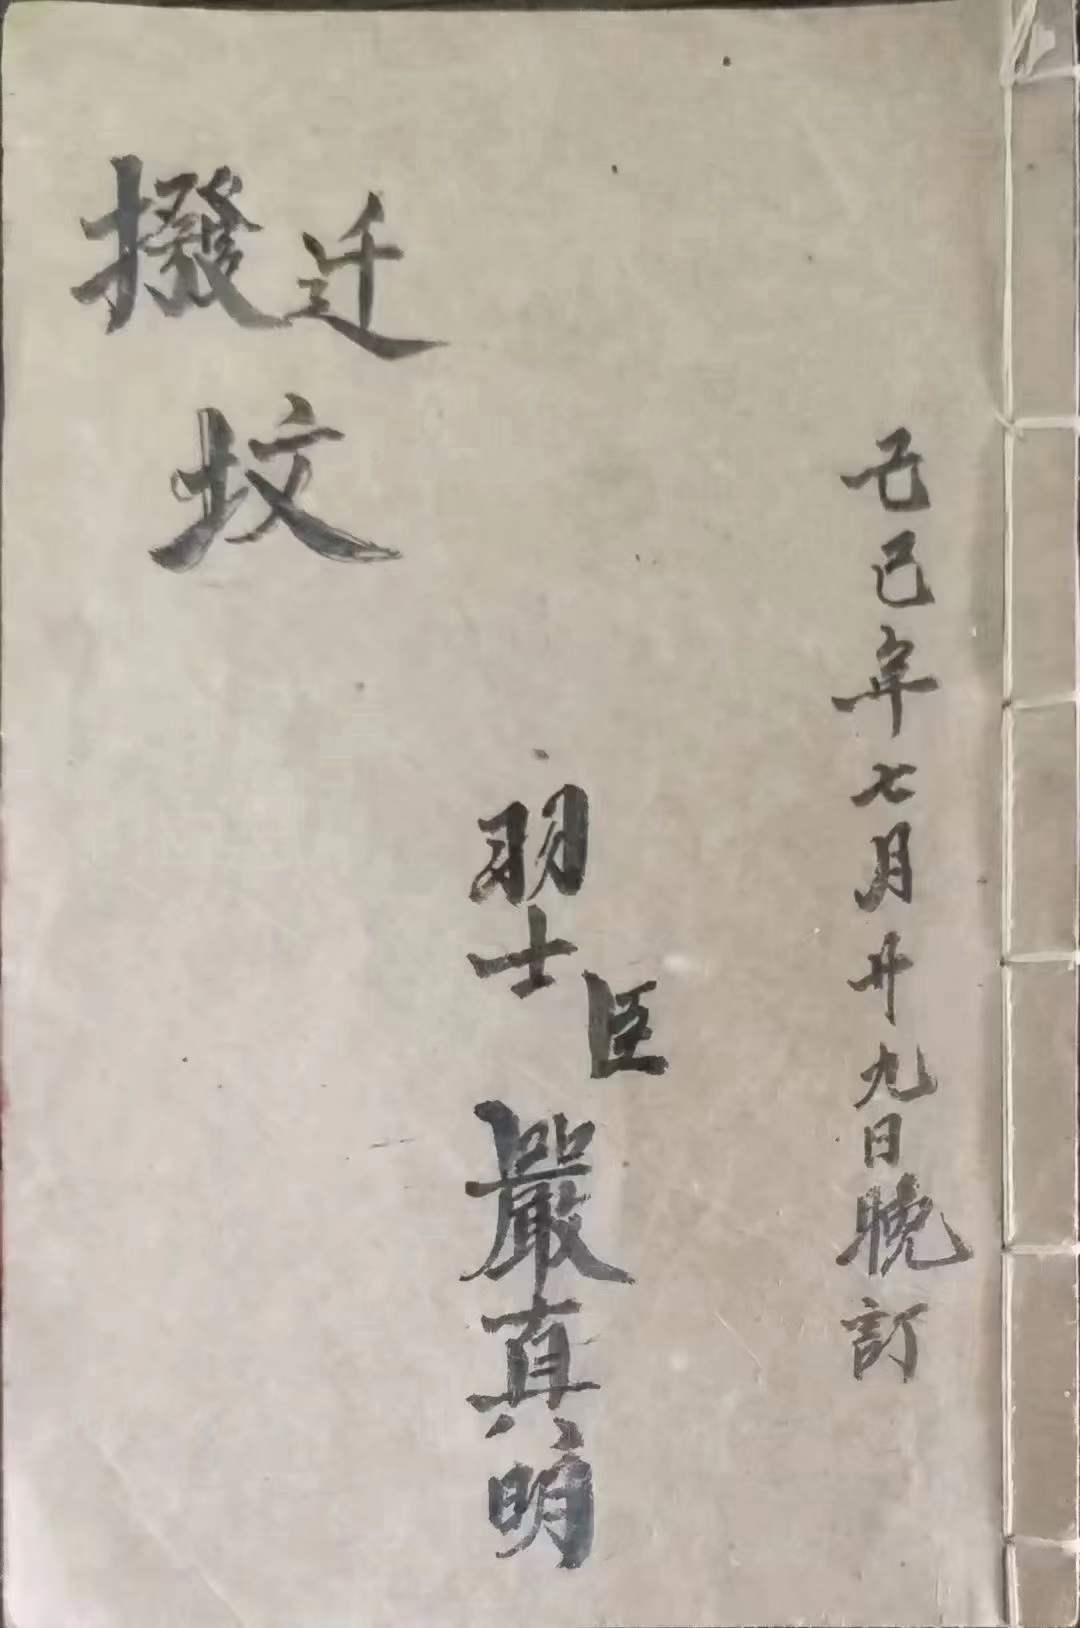 己巳年七月廿九日晚訂
羽士臣嚴真明
迁撥
坟